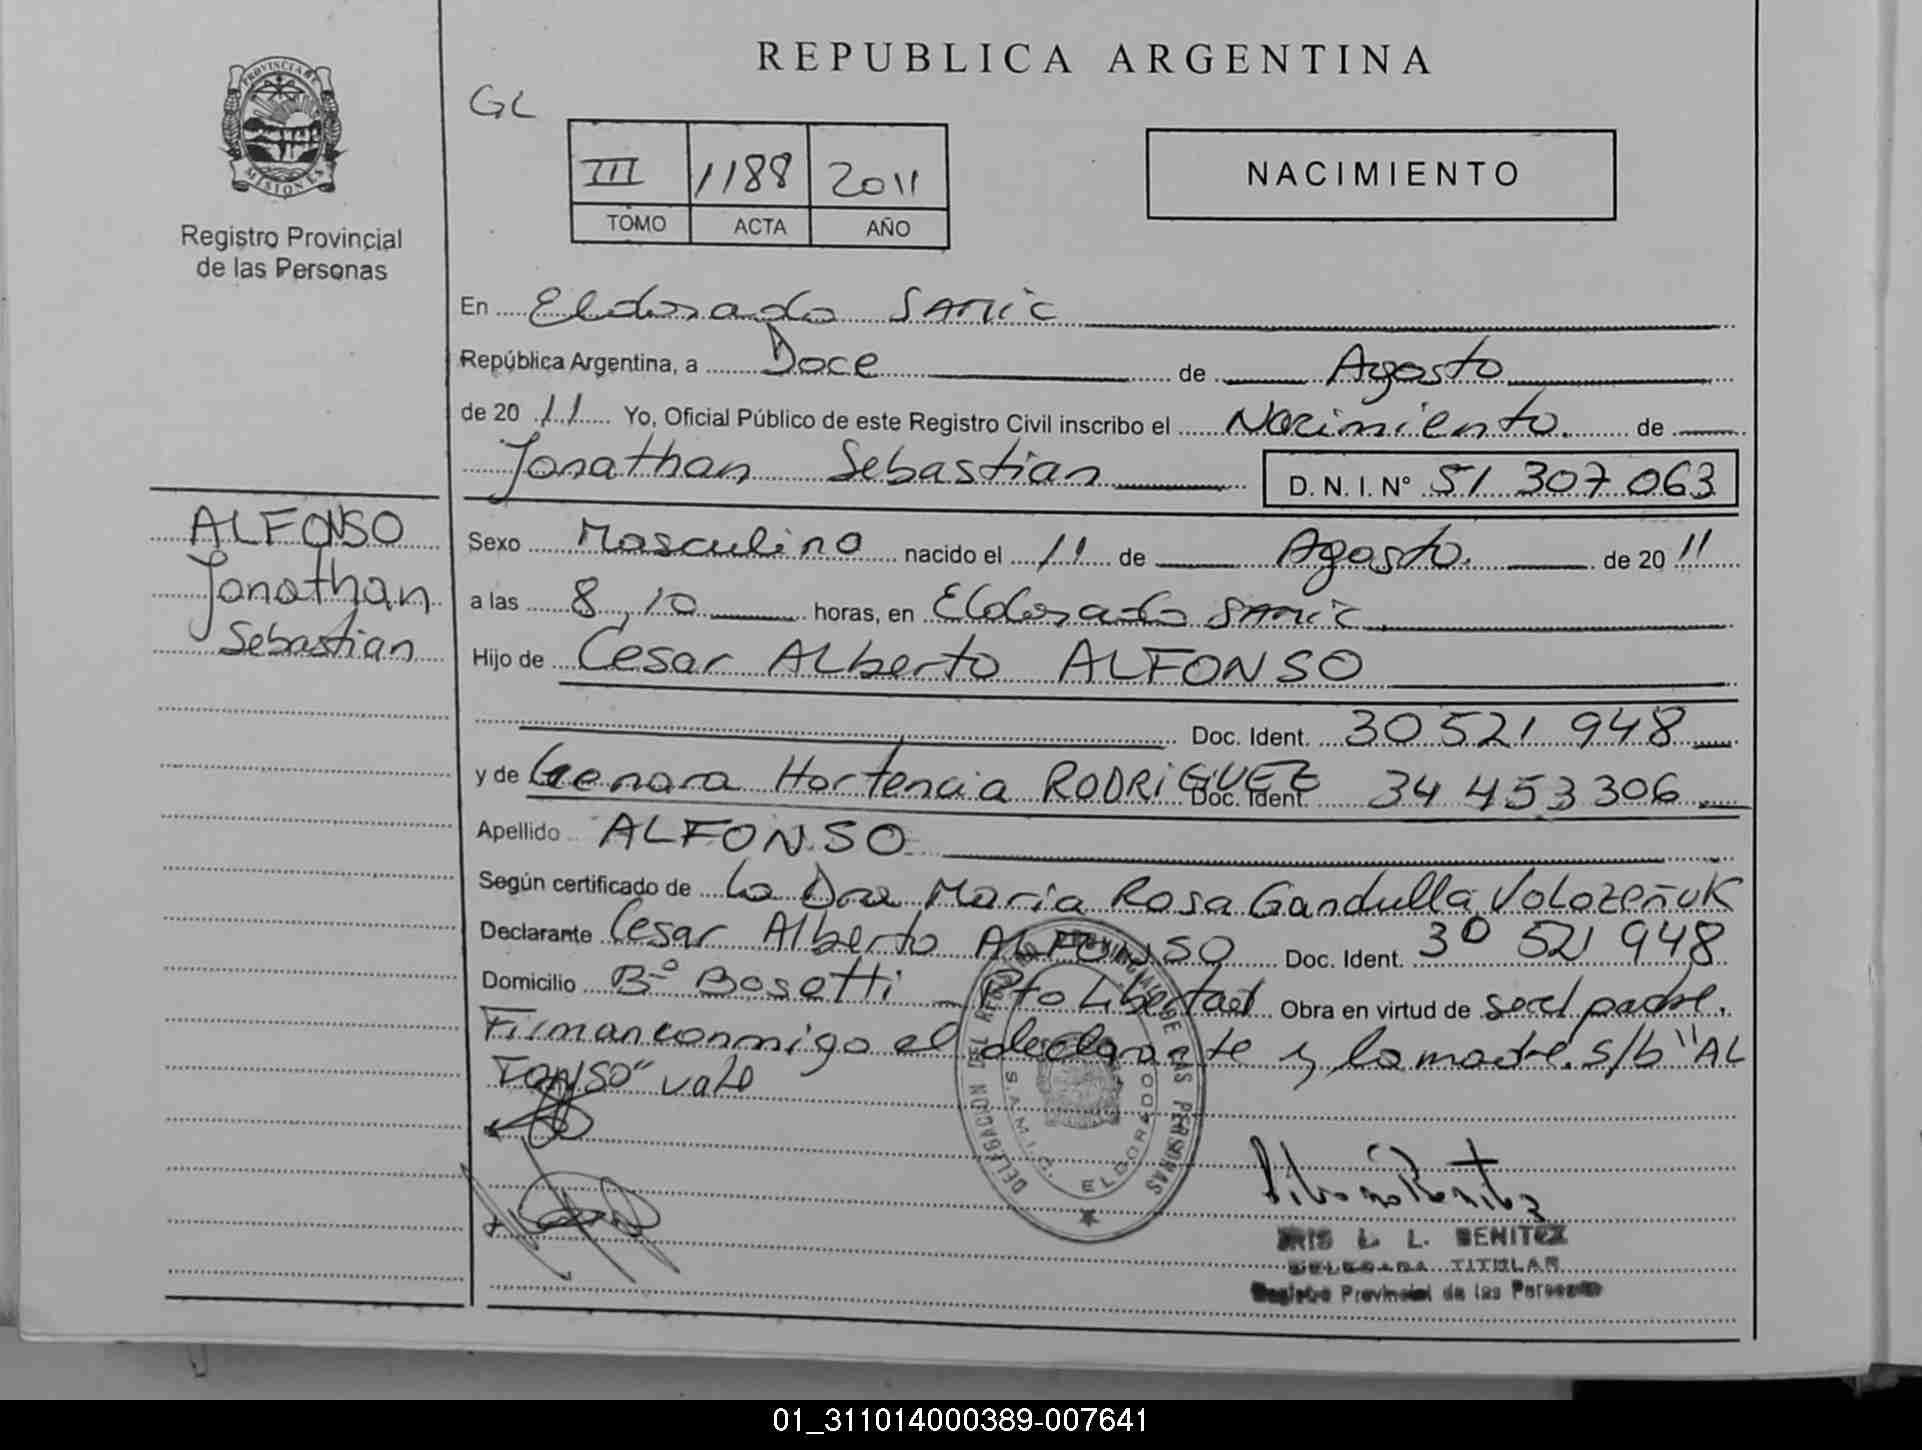 REPUBLICA ARGENTINA
PROVINCIA DE
MISIONES
Registro Provincial
de las Personas
GL
III 1188 2011
TOMO ACTA AÑO
NACIMIENTO
En Eldorado SAMIC
República Argentina, a Doce de Agosto
de 2011 Yo, Oficial Público de este Registro Civil inscribo el Nacimiento. de
Jonathan Sebastian D. N. I. Nº 51 307 063
ALFONSO
Jonathan
Sebastian
Sexo Masculino nacido el 11 de Agosto. de 2011
a las 8,10 horas, en Eldorado SAMIC
Hijo de Cesar Alberto ALFONSO
Doc. Ident. 30 521 948
y de Genara Hortencia RODRIGUEZ Doc. Ident. 34 453 306
Apellido ALFONSO
Según certificado de la Dra Maria Rosa Gandulla Volozeñuk
Declarante Cesar Alberto ALFONSO Doc. Ident. 30 521 948
Domicilio Bº Bosetti - Pto Libertad Obra en virtud de ser el padre.
Firman conmigo el declarante y la madre. s/b "AL
FONSO" vale
DELEGACION DEL REGISTRO PROVINCIAL DE LAS PERSONAS
S.A.M.I.C. ELDORADO
IRIS L. L. BENITEZ
DELEGADA TITULAR
Registro Provincial de las Personas
01_311014000389-007641